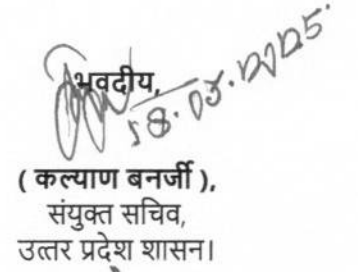 भवदीय,
18.03.2025
( कल्याण बनर्जी ),
संयुक्त सचिव,
उत्तर प्रदेश शासन।